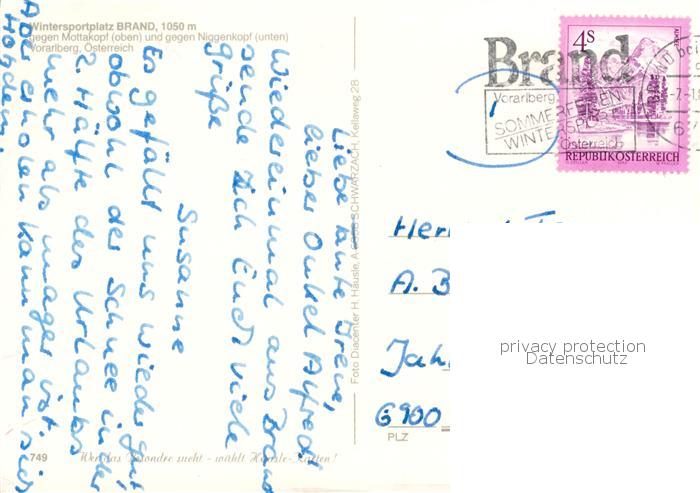 Wintersportplatz BRAND, 1050 m
gegen Mottakopf (oben) und gegen Niggenkopf (unten)
Vorarlberg, Österreich
Liebe Tante Irene,
lieber Onkel Alfred!
Wiedereinmal aus Brand
sende ich Euch viele
Grüße
Susanne
Es gefällt uns wieder gut
obwohl der Schnee in der
2. Hälfte des Urlaubes
mehr als mager ist.
Aber erholen kann man sich
trotzdem.
749
Wer das Besondre sucht - wählt Häusle-Karten!
Foto Diacenter H. Häusle, A 6858 SCHWARZACH, Kellaweg 28
Brand
Vorarlberg
SOMMERFERIEN
WINTERSPORT
Österreich
4S
REPUBLIK ÖSTERREICH
A. B
Jah
6900
PLZ
privacy protection
Datenschutz